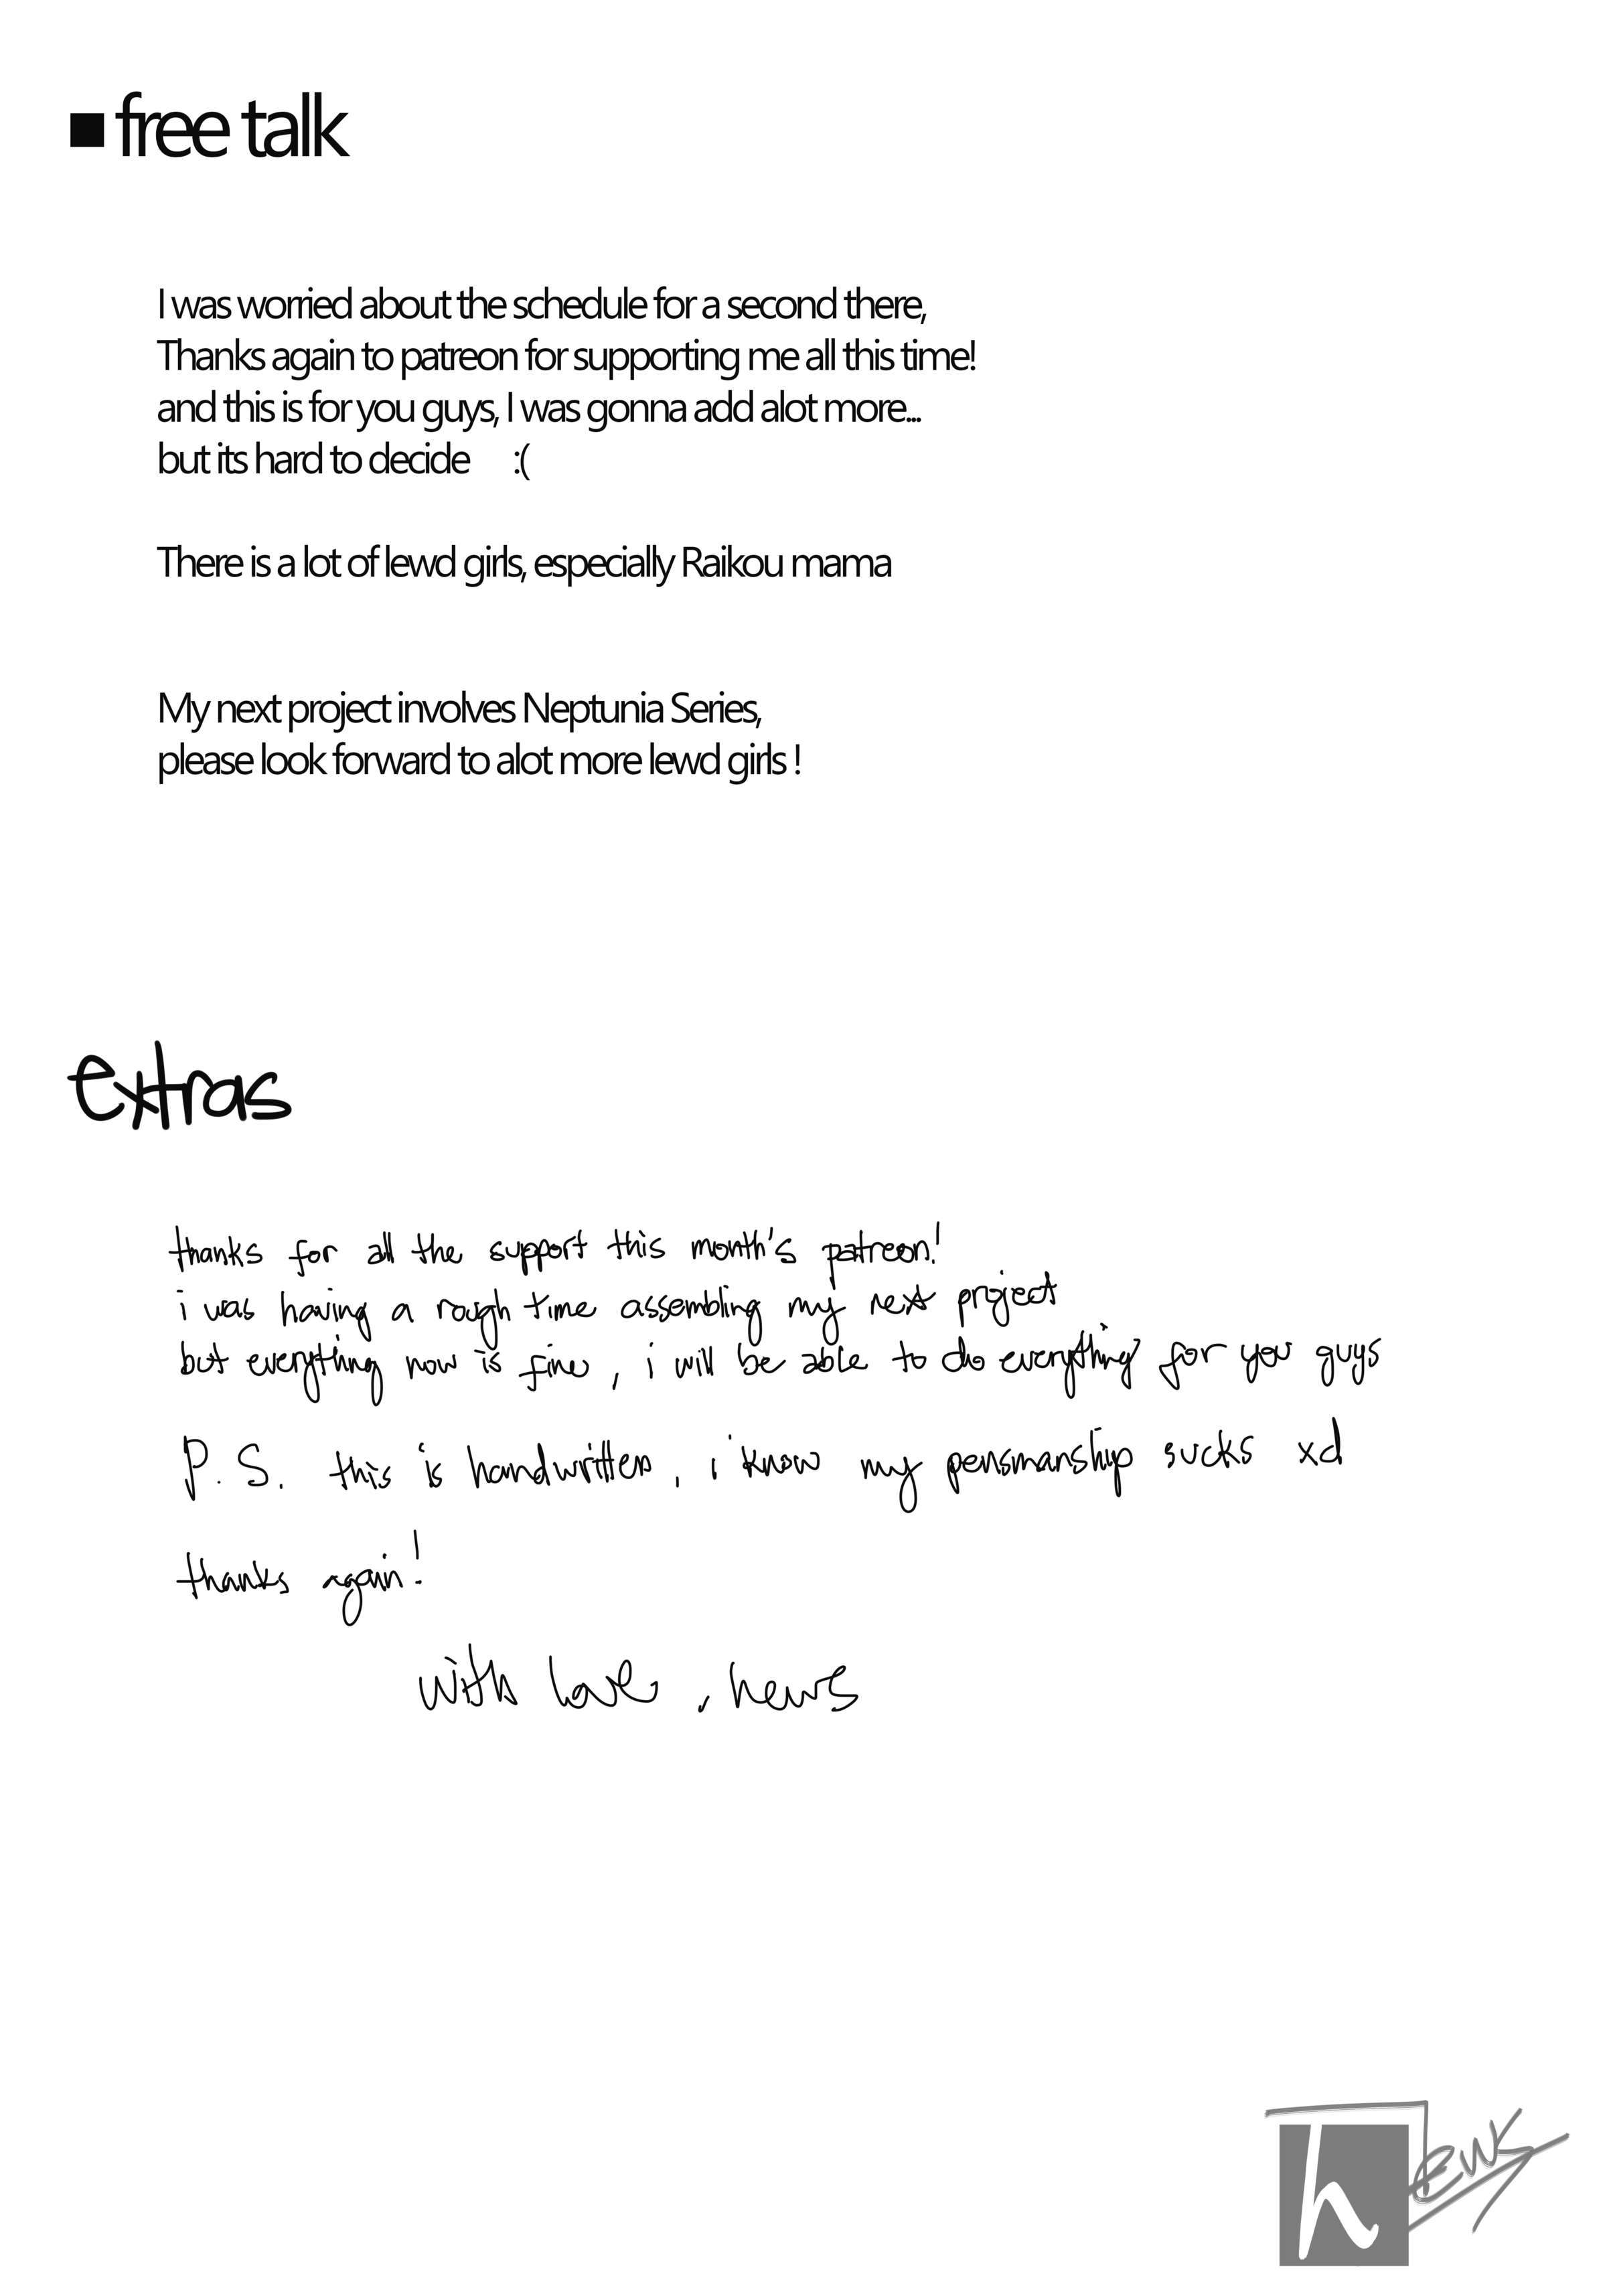 ■ free talk
I was worried about the schedule for a second there,
Thanks again to patreon for supporting me all this time!
and this is for you guys, I was gonna add alot more...
but its hard to decide :(
There is a lot of lewd girls, especially Raikou mama
My next project involves Neptunia Series,
please look forward to alot more lewd girls !
extras
thanks for all the support this month's patreon!
i was having a rough time assembling my next project
but everything now is fine, i will be able to do everything for you guys
P.S. this is handwritten, i know my pensmanship sucks xd
thanks again!
with love, hews
h